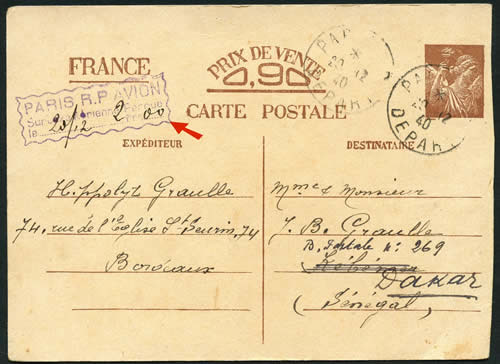 FRANCE
PRIX DE VENTE
0,90
CARTE POSTALE
PARIS R.P. AVION
Perçue
le 20/12 2 00
EXPÉDITEUR
DESTINATAIRE
PARIS
12
40
DEPART
PARIS
12
40
DEPART
Hippolyte Graulle
74, rue de l'Eglise St Seurin, 74
Bordeaux
Mme & Monsieur
J. B. Graulle
B. Postale No 269
Dakar
(Sénégal)